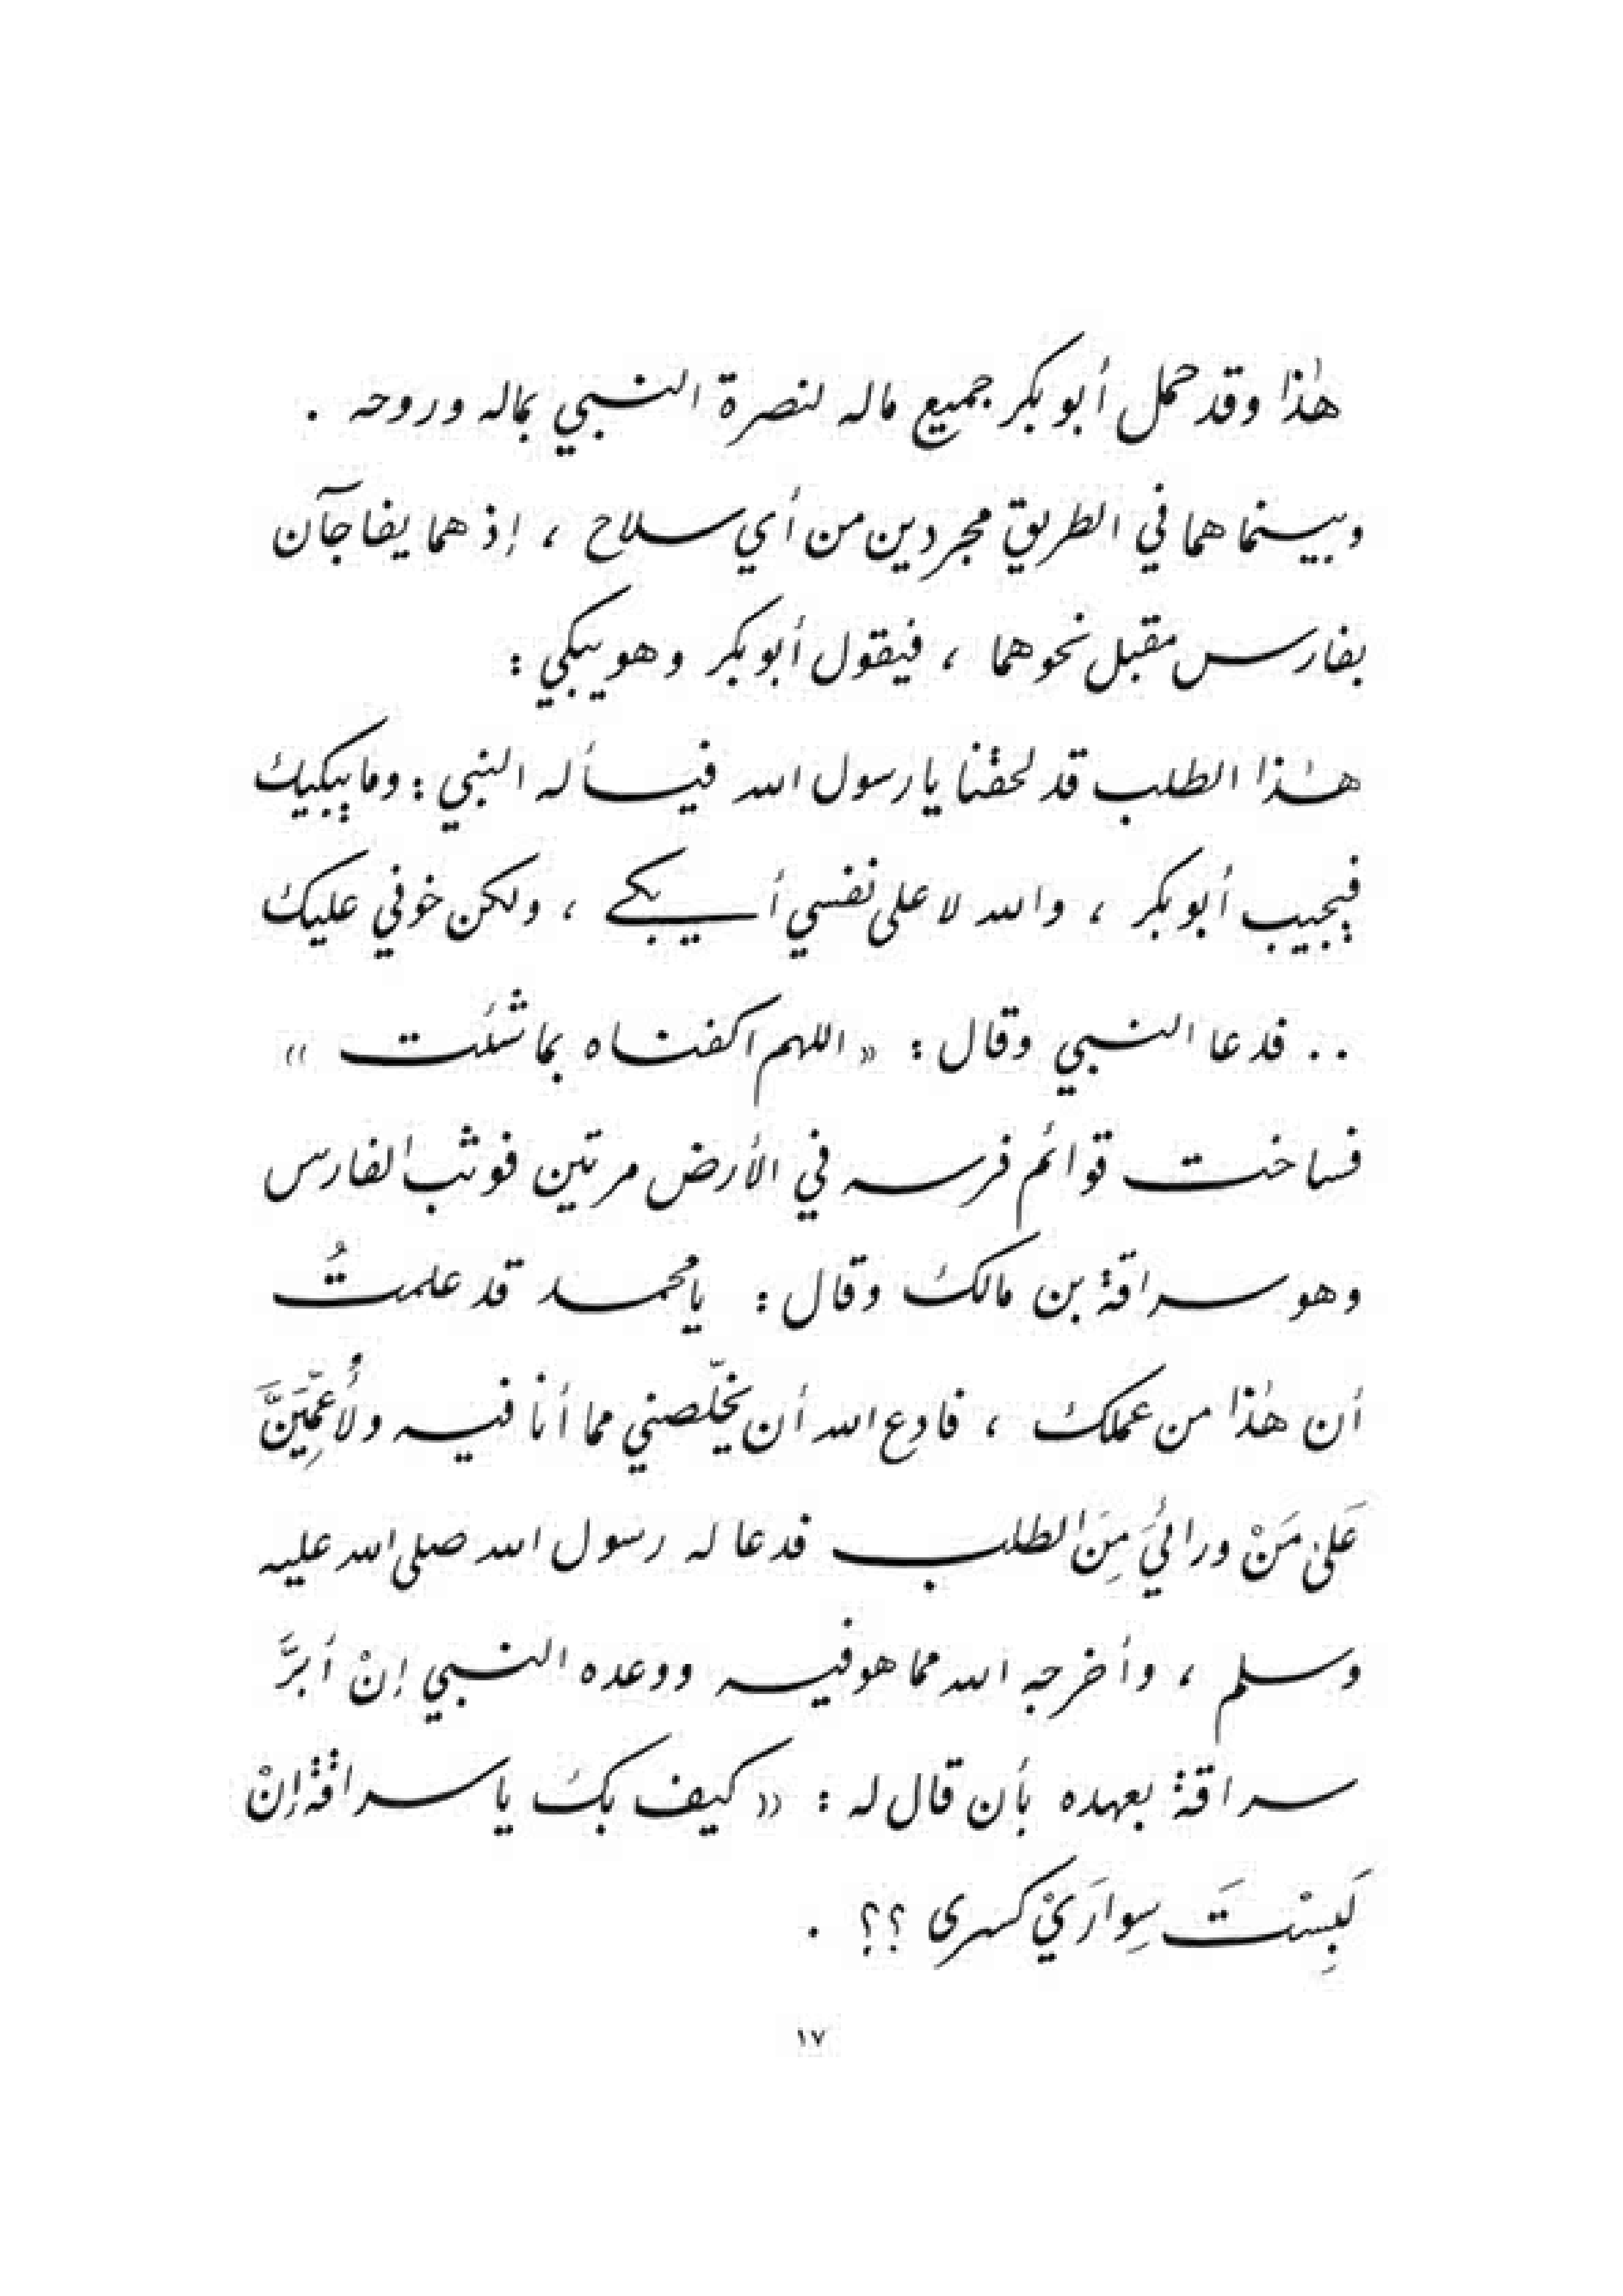 هٰذا وقد حمل أبو بكر جميع ماله لنصرة النبي بماله وروحه .
وبينما هما في الطريق مجردين من أي سلاح ، إذ هما يفاجآن
بفارس مقبل نحوهما ، فيقول أبو بكر وهو يبكي :
هٰذا الطلب قد لحقنا يا رسول الله فيسأله النبي : وما يبكيك
فيجيب أبو بكر ، والله لا على نفسي أبكي ، ولكن خوفي عليك
.. فدعا النبي وقال : « اللهم اكفناه بما شئت »
فساخت قوائم فرسه في الأرض مرتين فوثب الفارس
وهو سراقة بن مالك وقال : يا محمد قد علمتُ
أن هٰذا من عملك ، فادع الله أن يخلّصني مما أنا فيه ولأُعَمِّيَنَّ
عَلىٰ مَنْ ورائيَ مِنَ الطلب فدعا له رسول الله صلى الله عليه
وسلم ، وأخرجه الله مما هو فيه ووعده النبي إنْ أبَرَّ
سراقة بعهده بأن قال له : « كيف بك يا سراقة إنْ
لَبِسْتَ سِوارَيْ كسرى ؟؟ .
١٧